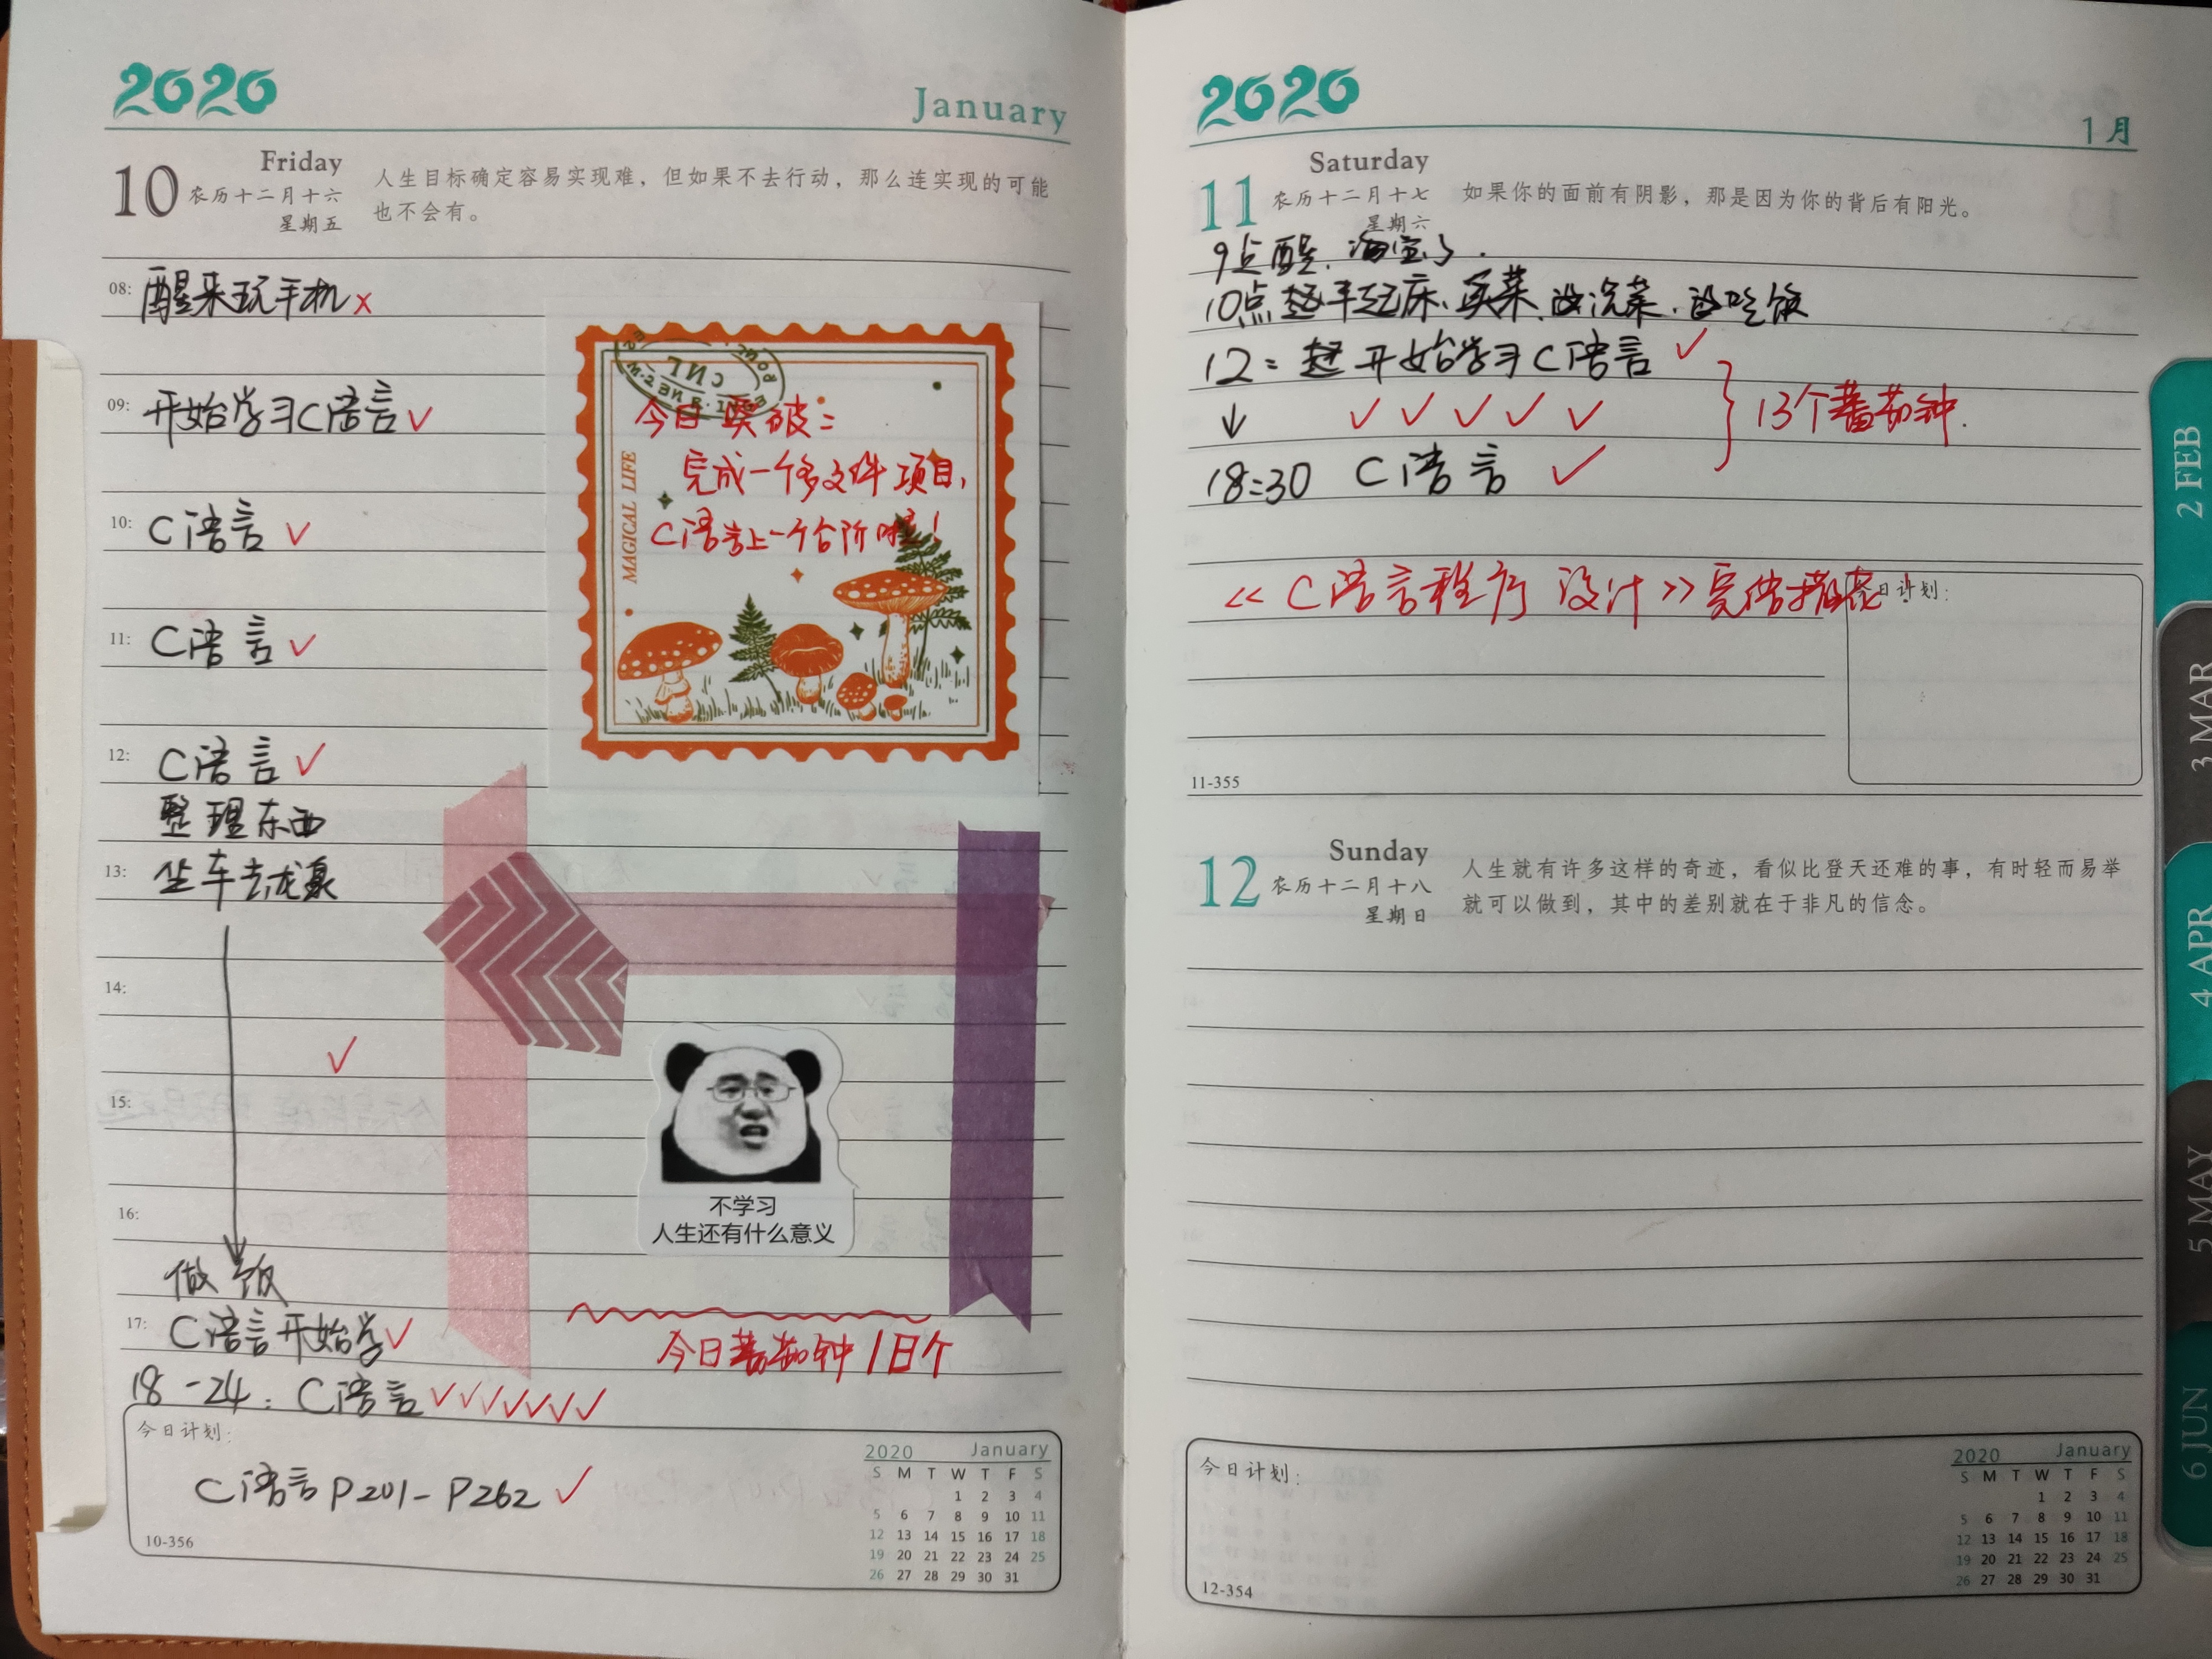 2020
January
10
Friday
农历十二月十六
星期五
人生目标确定容易实现难，但如果不去行动，那么连实现的可能
也不会有。
08: 醒来玩手机×
09: 开始学习C语言✓
10: C语言✓
11: C语言✓
12: C语言✓
整理东西
13: 坐车去龙泉
14:
✓
15:
16:
做饭
17: C语言开始学✓
18-24: C语言✓✓✓✓✓✓✓
CNL
MAGICAL LIFE
今日突破:
完成一个多文件项目,
C语言上一个台阶啦!
不学习
人生还有什么意义
今日蕃茄钟18个
今日计划:
C语言P201-P262✓
10-356
2020 January
S M T W T F S
1 2 3 4
5 6 7 8 9 10 11
12 13 14 15 16 17 18
19 20 21 22 23 24 25
26 27 28 29 30 31
2020
1月
11
Saturday
农历十二月十七
星期六
如果你的面前有阴影，那是因为你的背后有阳光。
9点醒.淘宝了.
10点起床、买菜.洗菜.吃饭
12: 开始学习C语言✓
↓ ✓✓✓✓✓
13个蕃茄钟.
18:30 C语言✓
<<C语言程序设计>>完结撒花!
今日计划:
11-355
12
Sunday
农历十二月十八
星期日
人生就有许多这样的奇迹，看似比登天还难的事，有时轻而易举
就可以做到，其中的差别就在于非凡的信念。
今日计划:
12-354
2020 January
S M T W T F S
1 2 3 4
5 6 7 8 9 10 11
12 13 14 15 16 17 18
19 20 21 22 23 24 25
26 27 28 29 30 31
2 FEB
3 MAR
4 APR
5 MAY
6 JUN